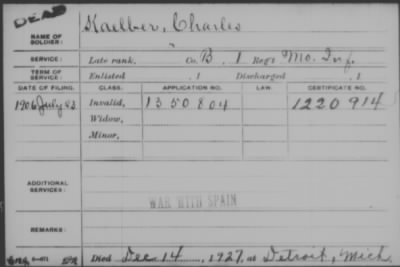 DEAD
NAME OF SOLDIER: Kaelber, Charles
SERVICE: Late rank, Co. B, 1 Reg't Mo. Inf.
TERM OF SERVICE: Enlisted , 1 Discharged , 1
DATE OF FILING. CLASS. APPLICATION NO. LAW. CERTIFICATE NO.
1906 July 23 Invalid, 1350804 1220914
Widow,
Minor,
ADDITIONAL SERVICES:
WAR WITH SPAIN
REMARKS:
Died Dec 14, 1927, at Detroit, Mich